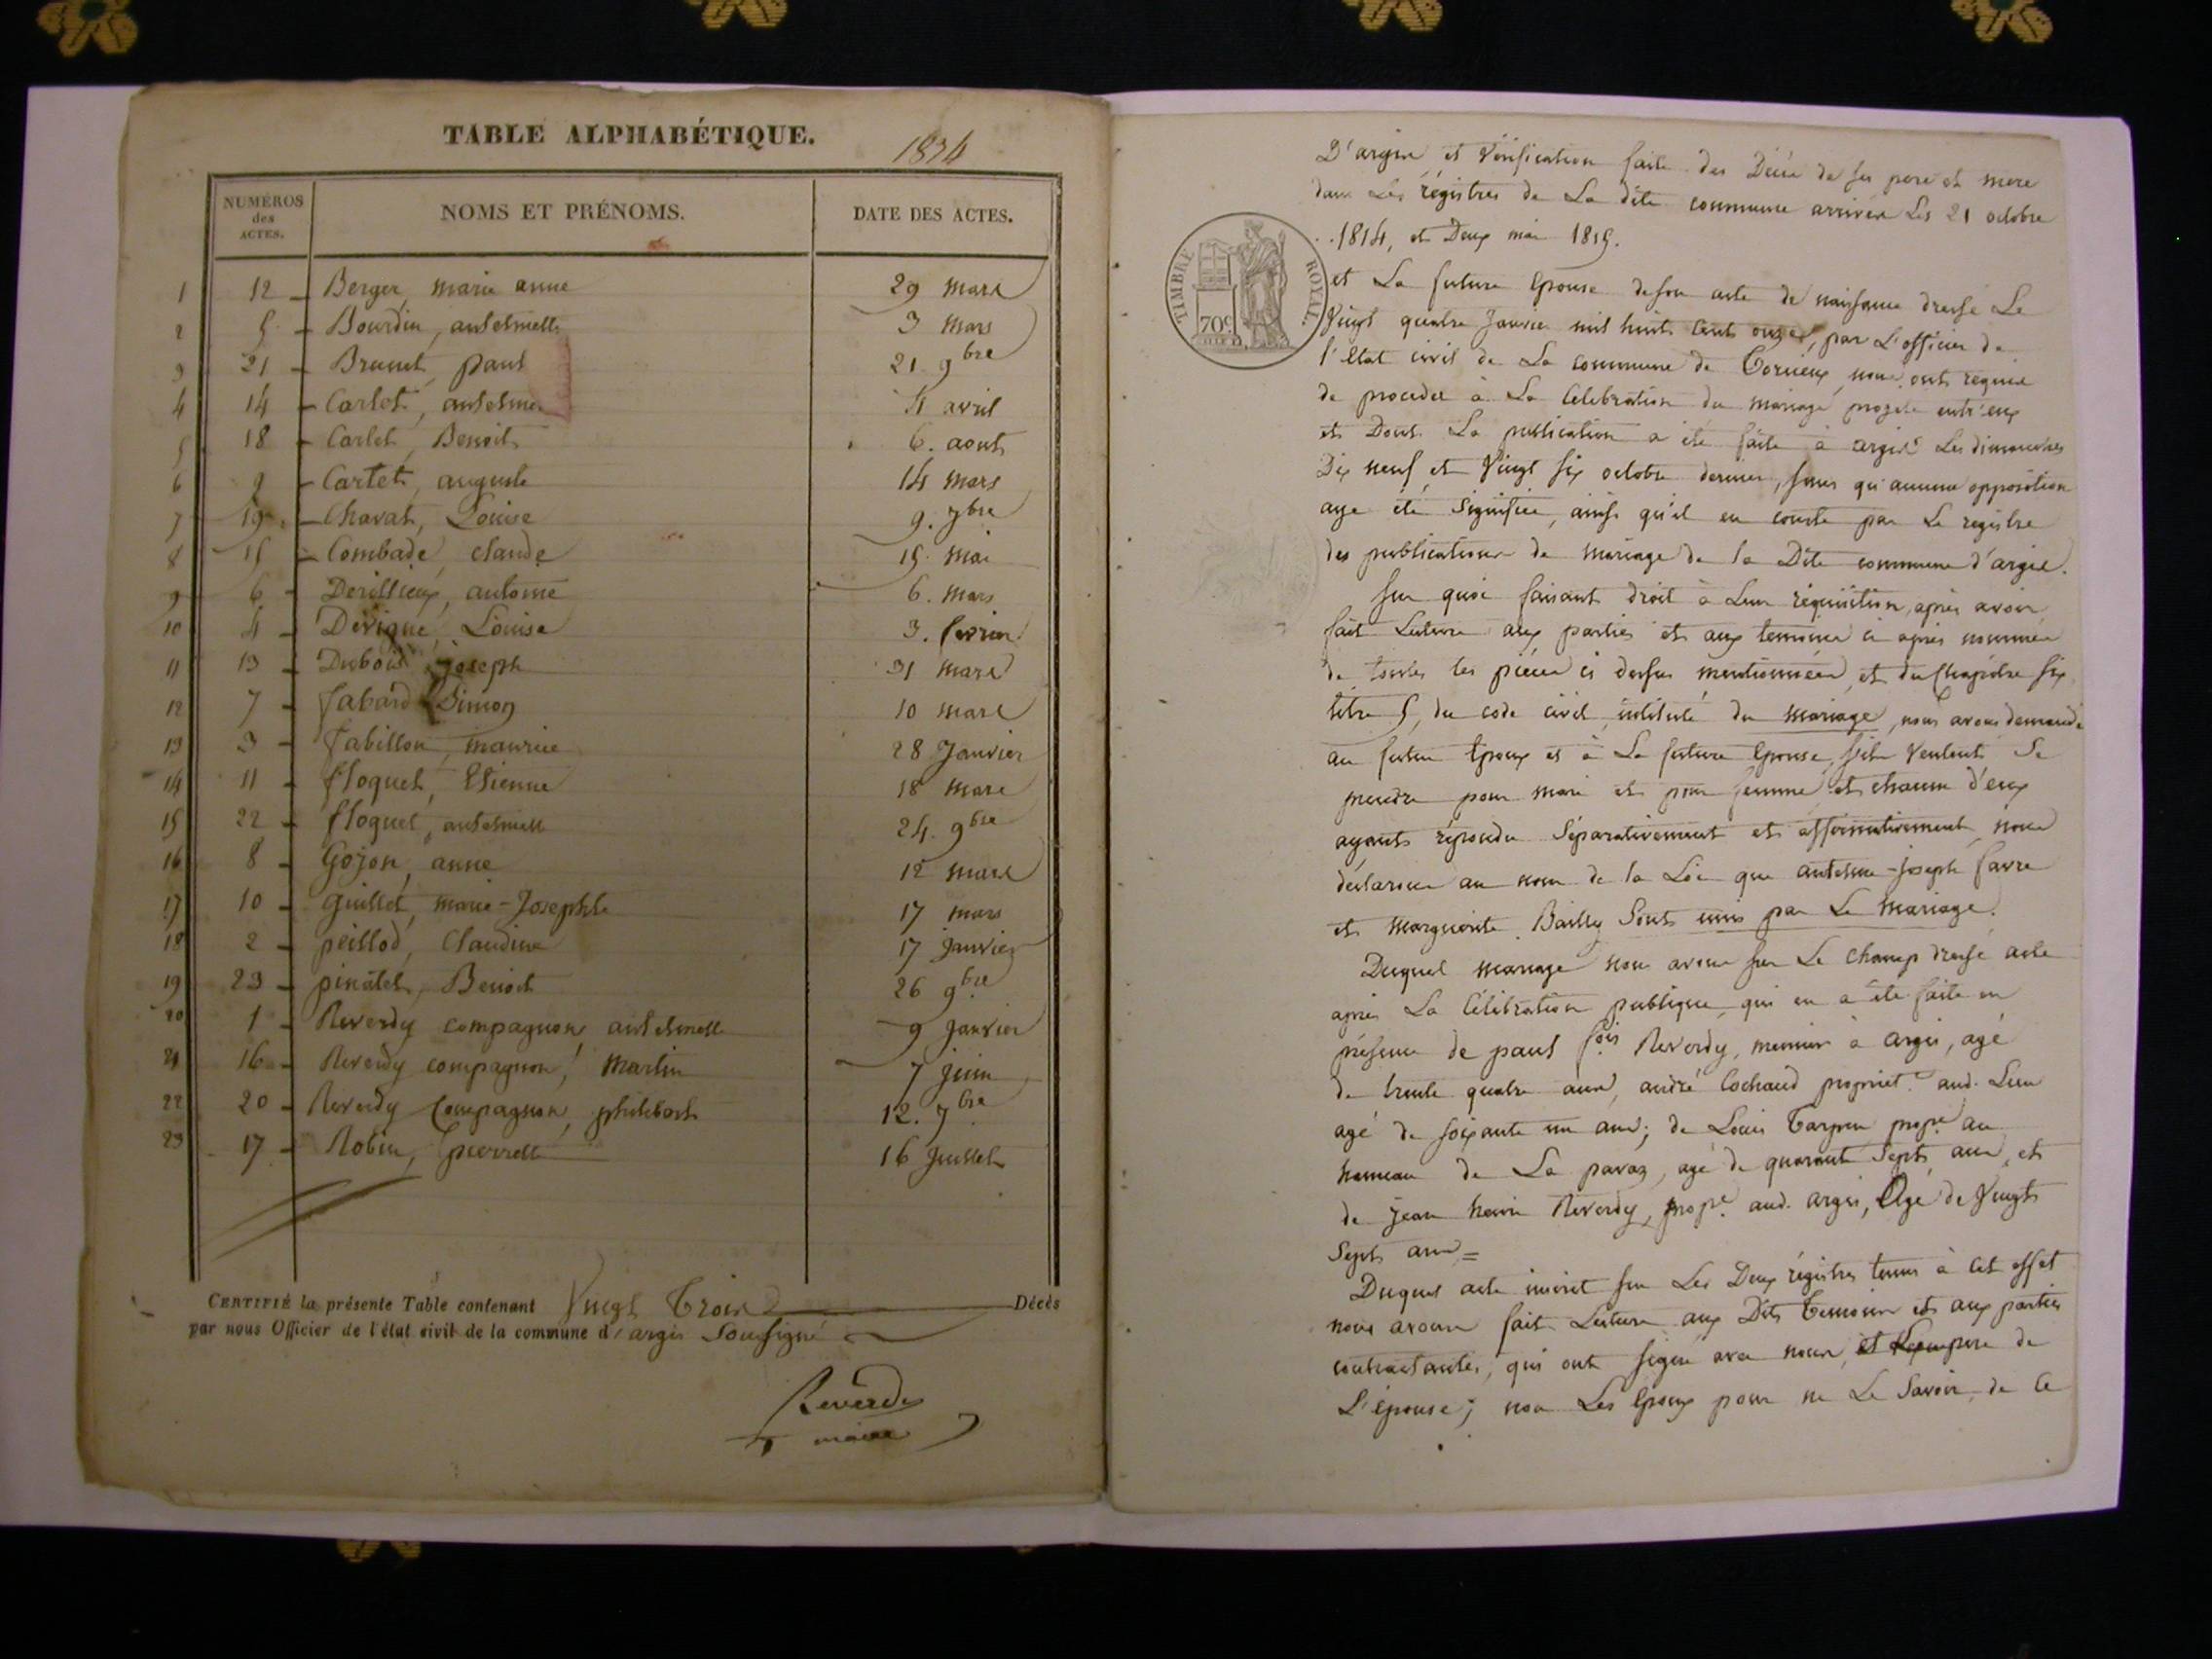 TABLE ALPHABÉTIQUE.
1834
NUMÉROS des ACTES.
NOMS ET PRÉNOMS.
DATE DES ACTES.
1 12 Berger, marie anne 29 mars
2 5 Bourdin, anthelmette 3 mars
3 21 Brunet, paul 21 9bre
4 14 Carlet, anthelme 4 avril
5 18 Carlet, Benoit 6. aout
6 9 Cartet, auguste 14 mars
7 19 Chavat, Louise 9. 7bre
8 15 Combade, claude 15. mai
9 6 Derillieux, antoine 6. mars
10 4 Devigne, Louise 3. fevrier
11 13 Dubois, joseph 31 mars
12 7 fabard Simon 10 mars
13 3 fabillon, maurice 28 Janvier
14 11 floquet, Etienne 18 mars
15 22 floquet, anthelmette 24. 9bre
16 8 Gojon, anne 12 mars
17 10 Guillet, marie-Josephte 17 mars
18 2 peillod, Claudine 17 janvier
19 23 pinatet, Benoit 26 9bre
20 1 Reverdy compagnon, anthelmette 9 janvier
21 16 Reverdy compagnon, Martin 7 juin
22 20 Reverdy Compagnon, philibert 12. 7bre
23 17 Robin, pierrette 16 Juillet
CERTIFIÉ la présente Table contenant Vingt Trois Décès
par nous Officier de l'état civil de la commune d'argis Soussigné
Reverdy
maire
D'argis et Vérification faite des Décès de ses pere et mere
dans Les régistres de La dite commune arrivés Les 21 octobre
1814, et Deux mai 1815.
TIMBRE ROYAL.
70c.
et La future Epouse de son acte de naissance dressé Le
Vingt quatre Janvier mil huit Cent onze, par L'officier de
l'Etat civil de La commune de Torcieux, nous ont requis
de proceder à La Celebration du mariage projeté entr'eux
et Dont La publication a été faite à argis Les dimanches
Dix neuf et Vingt six octobre dernier, sans qu'aucune opposition
aye été Signifiée, ainsi qu'il en conste par Le registre
des publications de Mariage de la Dite commune d'argis.
Sur quoi faisant droit à Leur réquisition, après avoir
fait Lecture aux parties et aux temoins ci après nommés
de toutes les pièces ci dessus mentionnées, et du Chapitre six
titre 5, du code civil, intitulé du Mariage, nous avons demandé
au futur Epoux et à La future Epouse, s'ils Veulent Se
prendre pour mari et pour femme et chacun d'eux
ayants répondu Séparativement et affirmativement, nous
déclarons au nom de la Loi que anthelme-Joseph favre
et Marguerite Bailly Sont unis par Le Mariage.
Duquel mariage nous avons sur Le Champ dressé acte
après La Célébration publique, qui en a été faite en
présence de paul fois Reverdy, meunier à argis, agé
de trente quatre ans, andré Cochaud propriet. aud. Lieu
agé de soixante un ans; de Louis Tarpin propre au
hameau de La pavaz, agé de quarante Sept ans, et
de jean henri Reverdy, propre aud. argis, Agé de Vingt
Sept ans =
Duquel acte inscrit sur Les Deux régistres tenus à Cet effet
nous avons fait Lecture aux Dits Temoins et aux parties
contractantes, qui ont signé avec nous, et pere de
L'épouse; non Les Epoux pour ne Le Savoir, de Ce